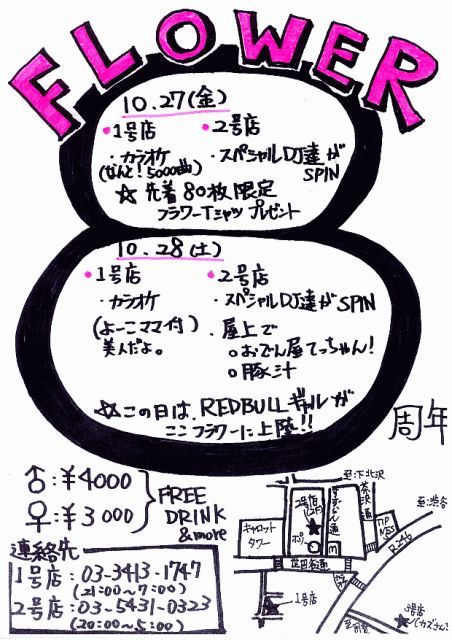 FLOWER
8
10.27(金)
・1号店 ・2号店
・カラオケ ・スペシャルDJ達が
(なんと!5000曲) SPIN
☆先着80枚限定
フラワーTシャツプレゼント
10.28(土)
・1号店 ・2号店
・カラオケ ・スペシャルDJ達がSPIN
(よーこママ付) ・屋上で
美人だよ。 ○おでん屋てっちゃん!
○豚汁
☆この日は、REDBULLギャルが
ここフラワーに上陸!!
周年
♂:¥4000
♀:¥3000
FREE
DRINK
& more
連絡先
1号店:03-3413-1747
(21:00~7:00)
2号店:03-5431-0323
(20:00~5:00)
至:下北沢
茶沢通
至:渋谷
2号店
キャロット
タワー
世田谷通
R-246
1号店
3号店